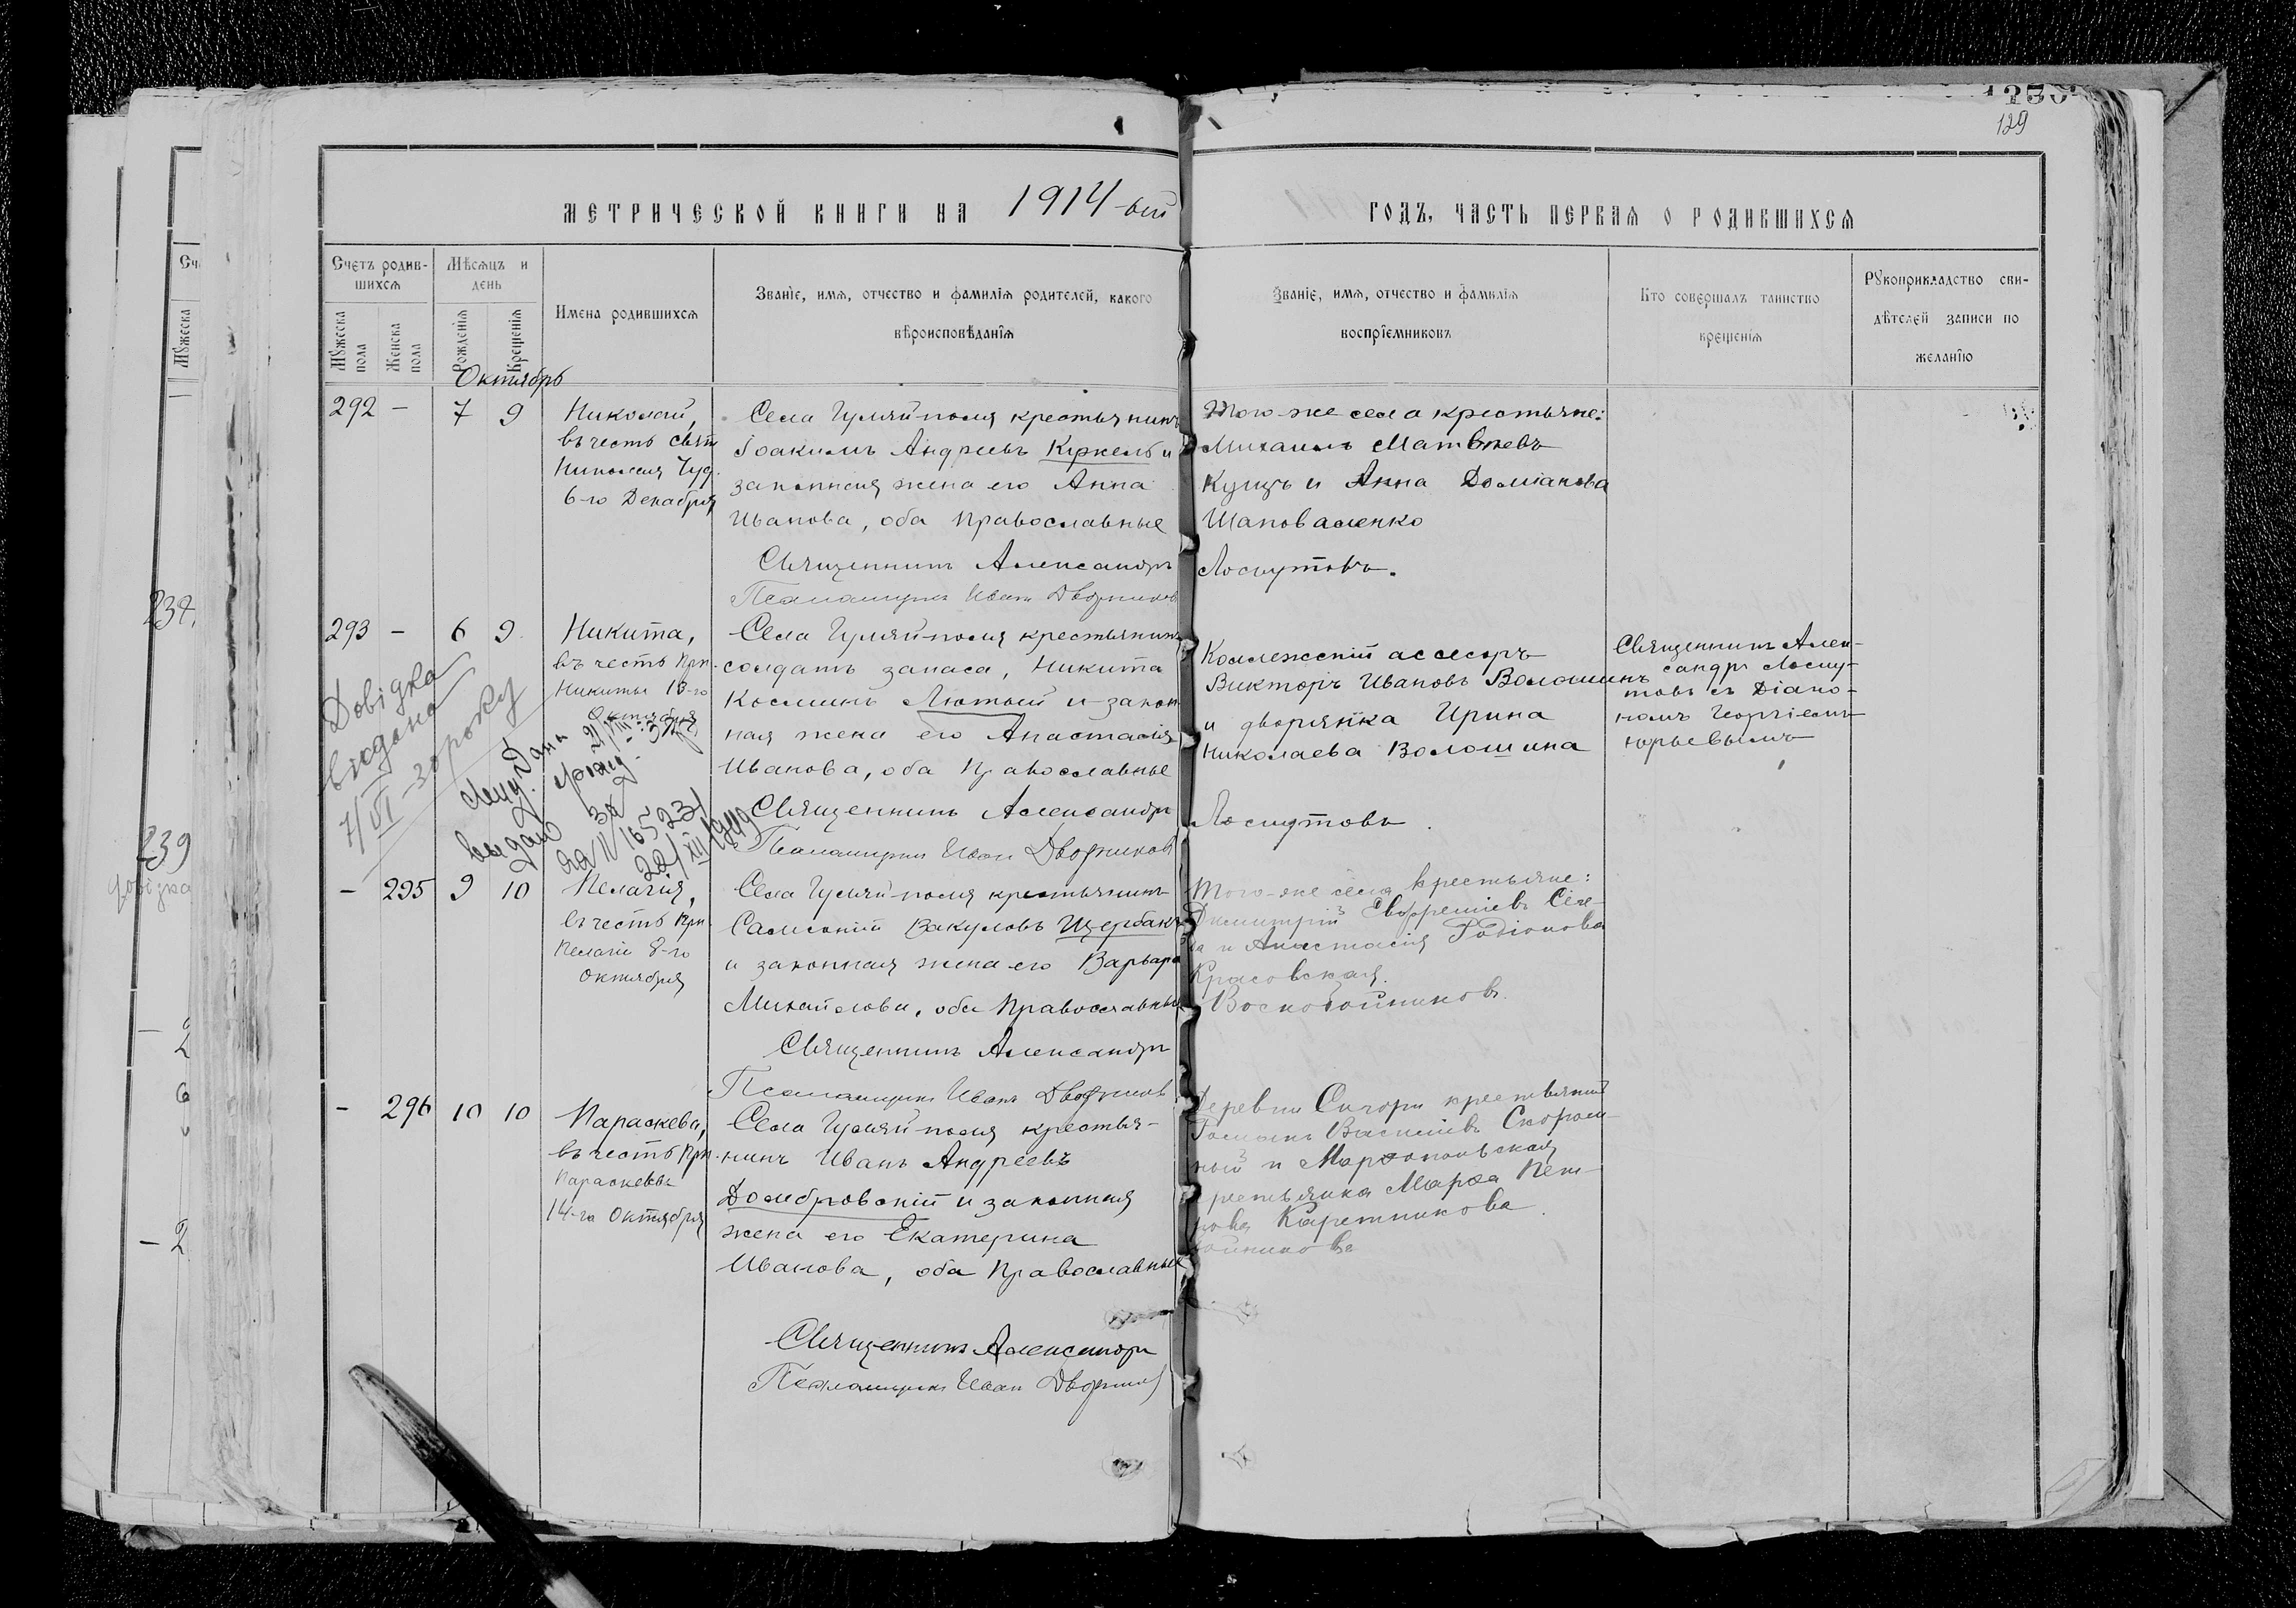 129
МЕТРИЧЕСКОЙ КНИГИ НА 1914-ый
ГОДЪ, ЧАСТЬ ПЕРВАЯ О РОДИВШИХСЯ
Счетъ родив-
шихся
Мѣсяцъ и
день
Мужеска
пола
Женска
пола
Рожденія
Крещенія
Имена родившихся
Званіе, имя, отчество и фамилія родителей, какого
вѣроисповѣданія
Званіе, имя, отчество и фамилія
воспріемниковъ
Кто совершалъ таинство
крещенія
Рукоприкладство сви-
дѣтелей записи по
желанію
Октябрь
292 – 7 9
Николай,
въ честь Свят
Николая Чуд.
6-го Декабря
Села Гуляй-поля крестьянинъ
Іоакимъ Андреевъ Киркель и
законная жена его Анна
Иванова, оба православные
Священникъ Александръ
Псаломщикъ Иван Дворников
Того-же села крестьяне:
Михаилъ Матвѣевъ
Куцъ и Анна Доміанова
Шаповаленко
Лоскутовъ.
293 – 6 9
Никита,
въ честь Прп.
Никиты 13-го
Октября
Села Гуляй-поля крестьянинъ
солдатъ запаса, Никита
Косминъ Лютый и закон
ная жена его Анастасія
Иванова, оба Православные
Священникъ Александръ
Псаломщикъ Иван Дворников
Коллежскій ассесоръ
Викторъ Ивановъ Волошинъ
и дворянка Ирина
Николаева Волошина
Лоскутовъ
Священникъ Алек-
сандръ Лоску-
товъ съ Діако-
номъ Георгіемъ
Юрьевымъ
Довідка
видана
7/VI-30 року
Дана
выдано за
20/XII/1949
– 295 9 10
Пелагія,
въ честь Прп.
Пелагіи 8-го
Октября
Села Гуляй-поля крестьянинъ
Самсоній Вакуловъ Щербакъ
и законная жена его Варвара
Михайлова, оба Православные
Священникъ Александръ
Псаломщикъ Иванъ Дворников
Того-же села крестьяне:
Димитрій Евфреміевъ
и Анастасія Родіонова
Красовская.
Воскобойниковъ.
– 296 10 10
Параскева,
въ честь Прп.
Параскевы
14-го Октября
Села Гуляй-поля крестья-
нинъ Иванъ Андреевъ
Домбровскій и законная
жена его Екатерина
Иванова, оба Православные
Священникъ Александръ
Псаломщикъ Иван Дворников
Деревни крестьянинъ
Романъ Василіевъ Скором
ный и
крестьянка Марѳа Пет-
рова Каретникова.
239